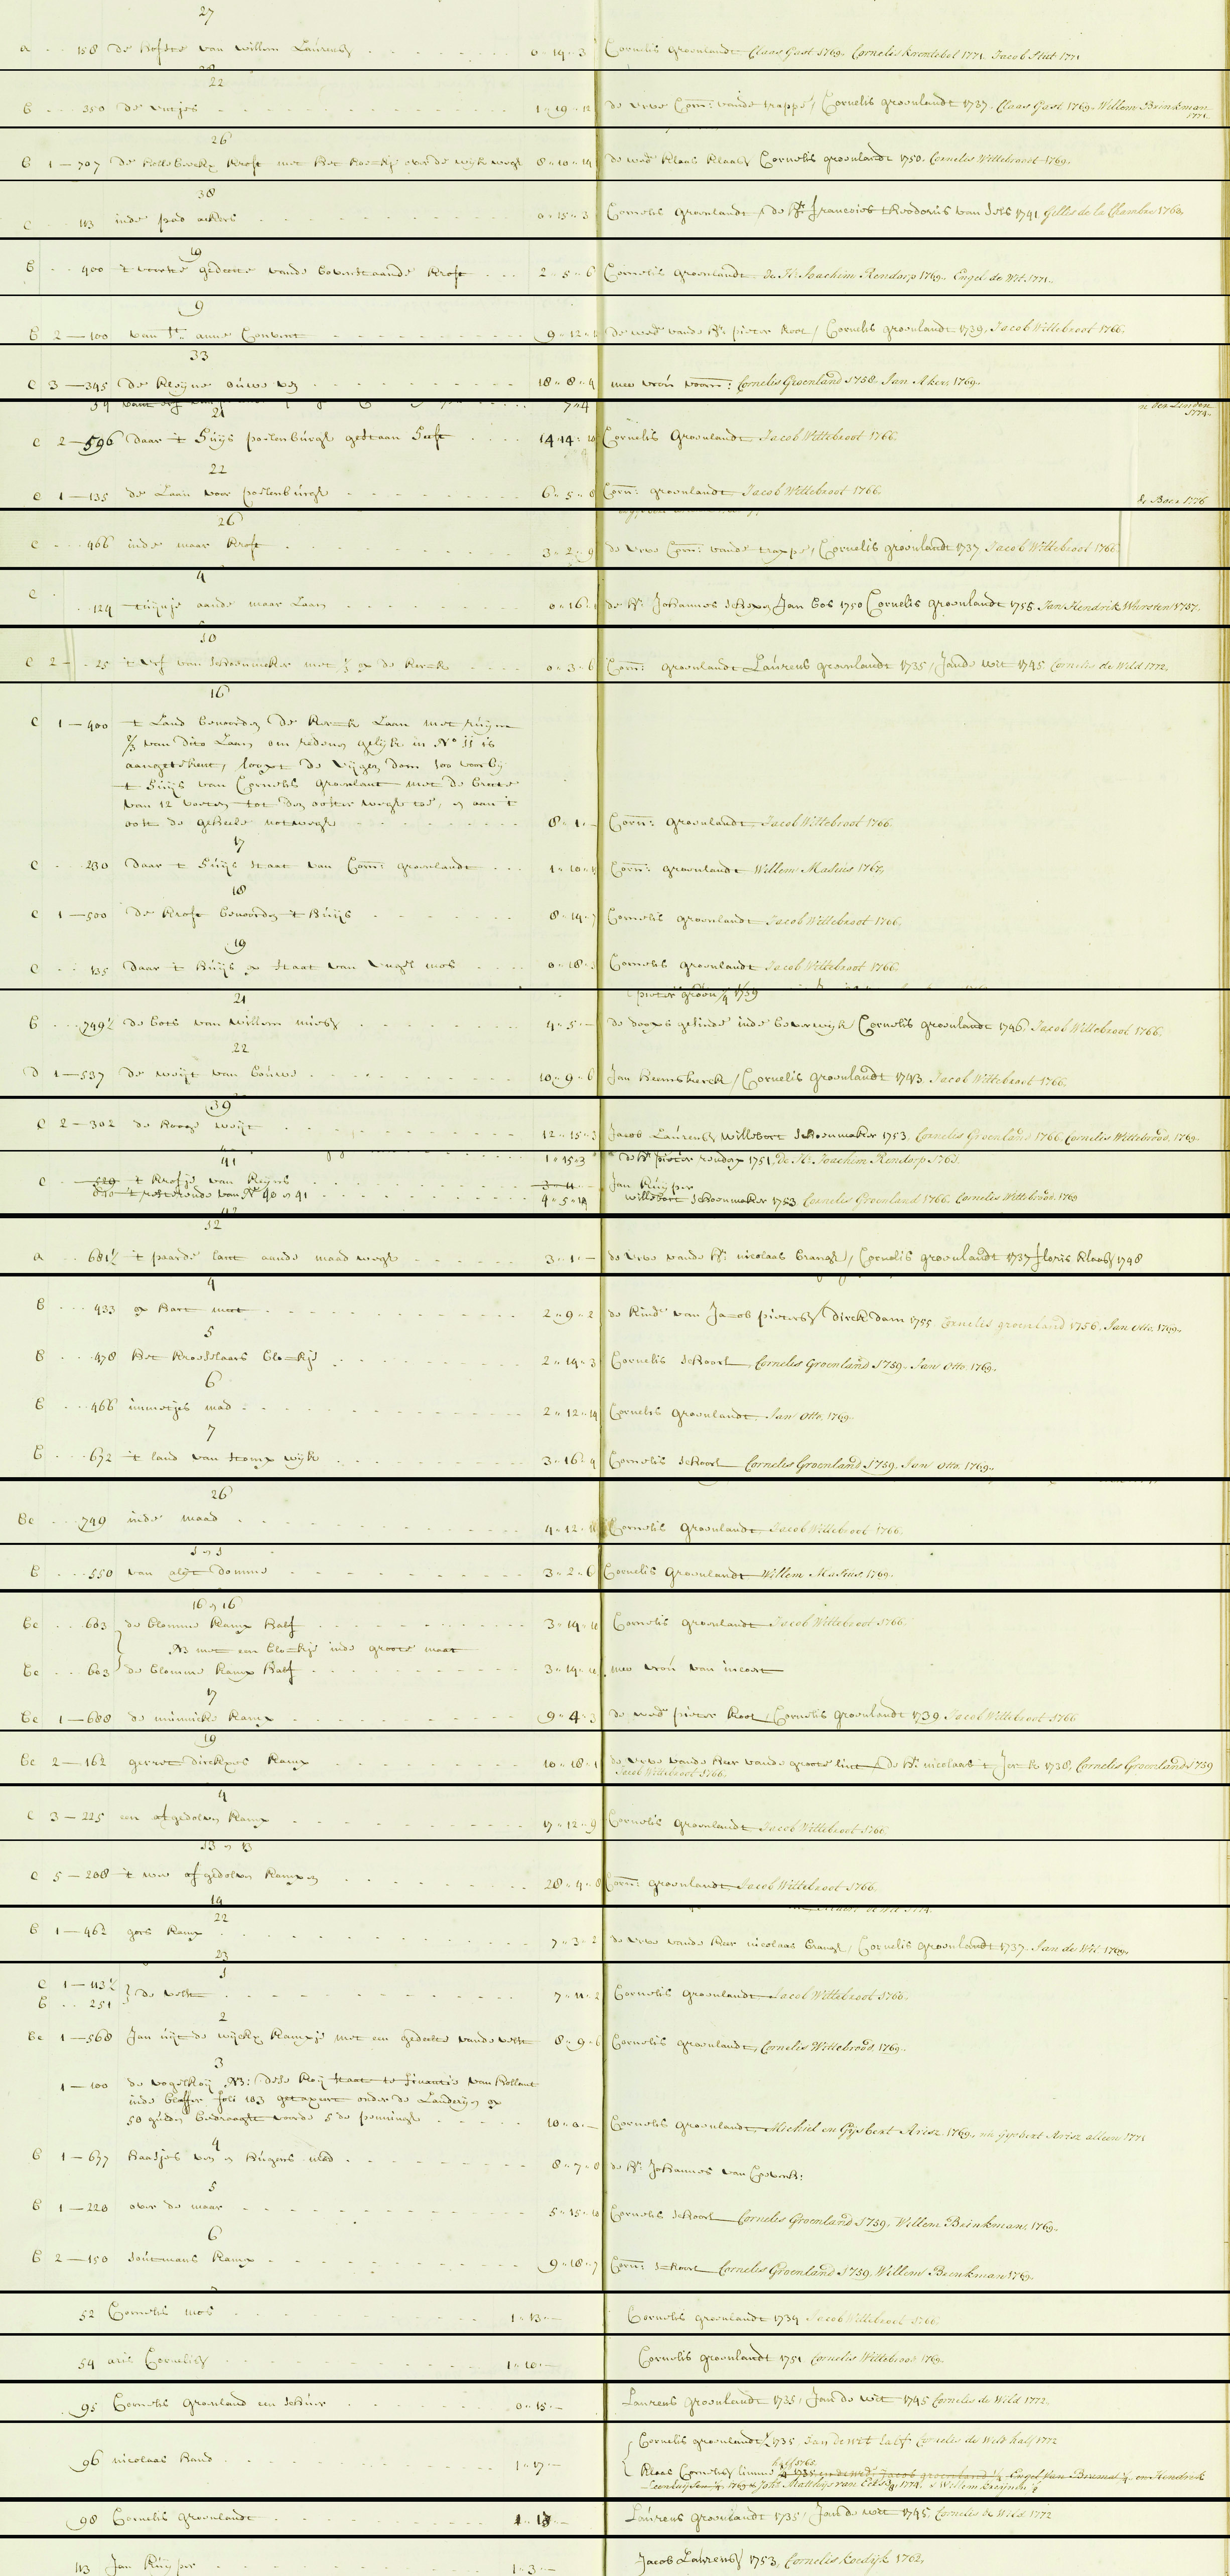 27
a . . 158 de hofstee van willem Laurensz 0 - 19 - 3 Cornelis groenlandt Claas Gast 1769. Cornelis Krentebol 1771. Jacob Stut 1771
22
b . . . 350 de vutjes 1 - 19 - 12 de vrve Corn: vande trappe / Cornelis groenlandt 1737. Claas Gast 1769. Willem Brinkman 1771
26
b 1 — 707 de hollebeecke kroft met het hoeckje over de wijk wegh 8 - 10 - 14 de wed: klaas klaasz Cornelis groenlandt 1750. Cornelis Willebroort 1769.
38
c . . 113 inde pad ackers 0 - 15 - 3 Cornelis groenlandt / de hr: francoios theodorus van Sols 1741 Gilles de la Chambre 1768.
19
b . . 400 't voorste gedeelte vande bovenstaande kroft 2 - 5 - 6 Cornelis groenlandt de Hr. Joachim Rendorp 1769. Engel de Wit. 1771.
9
b 2 — 100 van St. anne Convent 9 - 12 de wed: vande hr: pieter koot / Cornelis groenlandt 1739. Jacob Willebroot 1766.
33
c 3 — 345 de kleyne ouwe ven 18 - 8 - 4 mev vrou voorn: Cornelis Groenland 1758. Jan Aker, 1769.
21
c 2 — 596 daar 't huys poelenburgh gestaan heeft 14 - 14 - 10 Cornelis Groenlandt Jacob Willebroot 1766.
22
c 1 — 135 de Laan voor poelenburgh 6 - 5 - 8 Corn: groenlandt Jacob Willebroot 1766.
de Boer 1776
26
c . . . 466 inde maar kroft 3 - 2 - 9 de vrve Corn: vande trappe, Cornelis groenlandt 1737 Jacob Willebroot 1766.
4
c . . 124 tuyntje aande maar Laan 0 - 16 - de hr: Johannes schepen Jan bos 1750 Cornelis groenlandt 1755 Jan Hendrik Wursten 1757.
10
c 2 — . 25 't erf van schoenmaker met 1/3 op de kerck 0 - 3 - 6 Corn: groenlandt Laurens groenlandt 1735 / Jande wit 1745 Cornelis de Weld 1772.
16
c 1 — 400 't Land benoorden de kerck Laan met ruym
2/3 van dito Laan om reden gelijk in No 11 is
aangetekent, loopt de vijgen dam 100 voorby
't huijs van Cornelis groenlant met de breete
van 12 voeten tot den ooster wegh toe, en aan 't
oost de geheele notwegh 8 - 1 - — Corn: groenlandt Jacob Willebroot 1766.
17
c . . 230 daar 't huijs staat van Corn: groenlandt 1 - 10 - Corn: groenlandt Willem Masius 1767.
18
c 1 — 500 de kroft benoorden 't huijs 8 - 14 - 7 Cornelis groenlandt Jacob Willebroot 1766.
19
c . . 135 daar 't huijs op staat van engel mos 0 - 18 - Cornelis groenlandt Jacob Willebroot 1766.
21
b . . . 749½ de bots van willem miesz 4 - 5 - — de doops gesinde inde beverwijk / Cornelis groenlandt 1746. Jacob Willebroot 1766.
22
d 1 — 537 de weijt van bouwe 10 - 9 - 6 Jan heemskerck / Cornelis groenlandt 1743 Jacob Willebroot 1766.
39
c 2 — 302 de hooge weijt 12 - 15 - 3 Jacob Laurensz willebort schoenmaker 1753. Cornelis Groenland 1766. Cornelis Willebrood. 1769.
41
1 - 15 - 3 de hr: pieter rendorp 1751. de Hr. Joachim Rendorp 1763.
c . . 529 't kroftje van keyns 3 - 11 - Jan kuijper
dito 't resteerende van No 40 en 41 4 - 5 - 14 willebort schoenmaker 1753 Cornelis Groenland 1766. Cornelis Willebroot 1769
12
a . . 681½ 't paarde lant aande maad wegh 3 - 1 - — de vrve vande hr: nicolaas brangh / Cornelis groenlandt 1737 floris klaasz 1748
4
b . . . 433 op hart meet 2 - 9 - 2 de kind: van Jacob pietersz / Dirck dam 1755. Cornelis groenland 1756. Jan Otto. 1769.
5
b . . . 478 het kroosslaars blockje 2 - 14 - 3 Cornelis schoort Cornelis Groenland 1759. Jan Otto. 1769.
6
b . . . 466 immetjes mad 2 - 12 - 14 Cornelis groenlandt. Jan Otto. 1769.
7
b . . . 672 't land van stomp wijk 3 - 16 - 4 Cornelis schoort Cornelis Groenland 1759. Jan Otto. 1769.
26
bc . . . 749 inde maad 4 - 12 - Cornelis groenlandt Jacob Willebroot 1766.
b . . . 550 van alijt domme 3 - 2 - 6 Cornelis Groenlandt Willem Masius. 1769.
16 en 16
bc . . . 603 de blomme kamp half 3 - 14 - Cornelis groenlandt Jacob Willebroot 1766.
NB met een blockje inde groote maat
bc . . . 603 de blomme kamp half 3 - 14 - mev vrou van
17
bc 1 — 688 de munnicke kamp 9 - 4 - 3 de wed: pieter koot / Cornelis groenlandt 1739 Jacob Willebroot 1766
19
bc 2 — 162 gerret dirckxes kamp 10 - 18 - 1 de vrve vande heer vande groote lint / de hr: nicolaas 1738. Cornelis Groenland 1759
Jacob Willebroot 1766.
4
c 3 — 225 een afgedolven kamp 17 - 12 - 9 Cornelis groenlandt Jacob Willebroot 1766.
13 en 13
c 5 — 208 't wee afgedolven kampen 28 - 4 - 8 Corn: groenlandt Jacob Willebroot 1766.
14
22
b 1 — 462 gors kamp 7 - 3 - 2 de vrve vande heer nicolaas brangh / Cornelis groenlandt 1737. Jan de Wit. 1769.
23
1
c 1 — 113½ } de velst 7 - 11 - 2 Cornelis groenlandt Jacob Willebroot 1766.
b . . 251
2
bc 1 — 568 Jan uijt de wijckx kampje met een gedeelte vande velst 8 - 9 - 6 Cornelis groenlandt, Cornelis Willebrood, 1769.
3
1 — 100 de vogelkoij NB: dese koij staat te finantie van hollant
inde blaffer folio 183 getaxeert onder de Landerijen op
50 gulden bedraagt voorde 5 de penningh 10 - 0 - — Cornelis groenlandt Michiel en Gijsbert Arisz 1769. en gijsbert Arisz alleen 1771
4
b 1 — 677 haasjes ven en huigens mad 8 - 7 - 8 de hr: Johannes van
5
b 1 — 220 over de maar 5 - 15 - 10 Cornelis schoort Cornelis Groenland 1759. Willem Brinkman, 1769.
6
b 2 — 150 soutmans kamp 9 - 18 - 7 Corn: schoort Cornelis Groenland 1759, Willem Brinkman 1769.
52 Cornelis mos 1 - 13 - — Cornelis groenlandt 1734 Jacob Willebroot 1766.
54 aris Cornelisz 1 - 10 - — Cornelis groenlandt 1751 Cornelis Willebroot 1769.
95 Cornelis groenland een schuur 0 - 15 - — Laurens groenlandt 1735 / Jan de wit 1745 Cornelis de Weld 1772.
Cornelis groenlandt ½ 1735 Jan de wit half Cornelis de Weld half 1772
96 nicolaas hand 1 - 17 - — half 1765
Klaas Cornelisz limmen ½ 1735 en de wed: Jacob groenland ¼ Engel van Bremen ¼ en Hendrik
1769 Joh: Matthys van Eck 1774.
98 Cornelis groenlandt 1 - 13 - — Laurens groenlandt 1735 / Jan de wit 1745, Cornelis de Weld 1772
113 Jan kuijper 1 - 3 - — Jacob Laurensz 1753, Cornelis koedijk 1762.